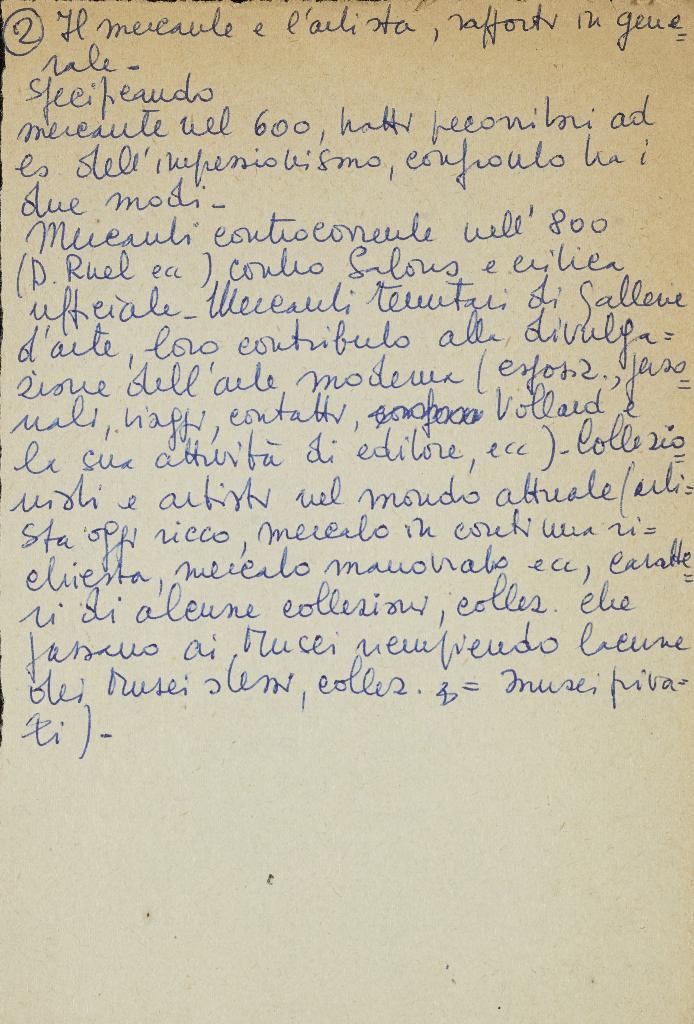 ② Il mercante e l'artista, rapporti in gene=
rale -
Specificando
mercante nel 600, tratti peconitori ad
es dell'impressionismo, confronto tra i
due modi -
Mercanti controcorrente nell' 800
(D. Ruel ecc) contro Salons e critica
ufficiale - Mercanti tenutari di Gallerie
d'arte, loro contributo alla divulga=
zione dell'arte moderna (esposiz., perso=
nali, viaggi, contatti, Vollard e
la sua attività di editore, ecc) - Collezio=
nisti e artisti nel mondo attuale (arti=
sta oggi ricco, mercato in continua ri=
chiesta, mercato manovrato ecc, caratte=
ri di alcune collezioni, collez. che
passano ai Musei riempiendo lacune
dei Musei stessi, collez. = musei priva=
ti) -